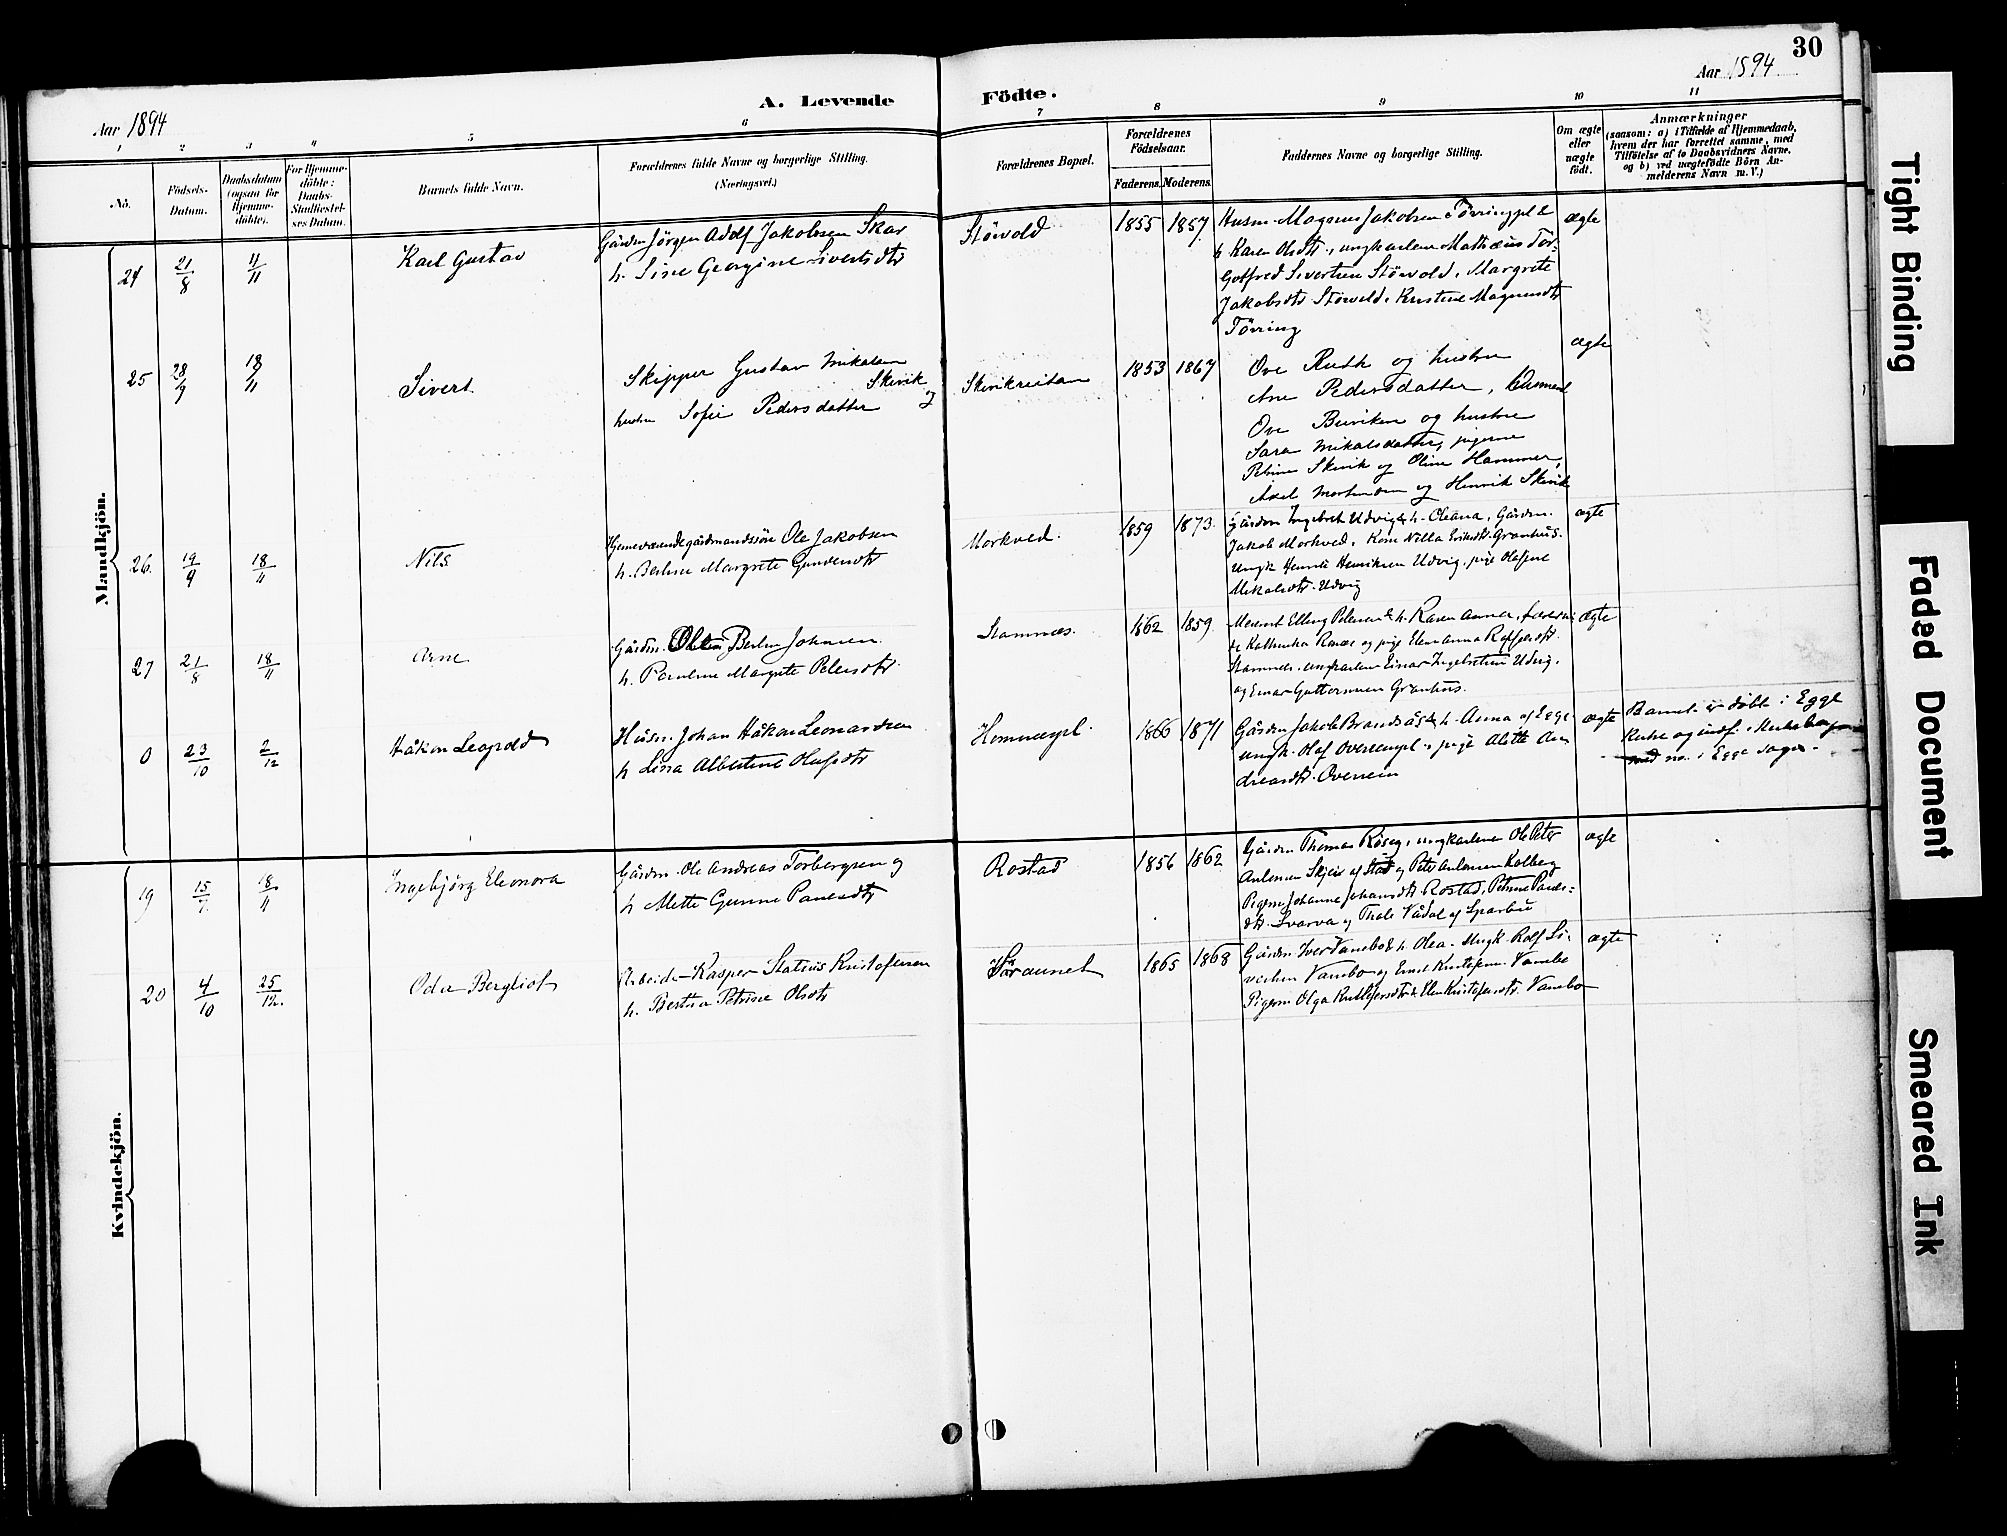 30
Aar 1894
A. Levende Födte.
Aar 1894
1 2 3 4 5 6 7 8 9 10 11
No.
Födsels-
Datum.
Daabsdatum
(ogsaa for
Hjemme-
döbte).
For Hjemme-
döbte:
Daabs-
Stadfæstel-
ses Datum.
Barnets fulde Navn.
Forældrenes fulde Navne og borgerlige Stilling.
(Næringsvei.)
Forældrenes Bopæl.
Forældrenes
Födselsaar.
Faderens. Moderens.
Faddernes Navne og borgerlige Stilling.
Om ægte
eller
uægte
födt.
Anmærkninger
(saasom: a) i Tilfælde af Hjemmedaab,
hvem der har forrettet samme, med
Tilföielse af to Daabsvidners Navne,
og b) ved uægtefödte Börn An-
melderens Navn m. V.)
Mandkjön.
24 21/8 11/11 Karl Gustav
Gårdm Jörgen Adolf Jakobsen Skar
h. Sine Georgine Sivertsdtr
Stövold 1855 1857
Husm. Magnus Jakobsen Törringpl &
h Karen Olsdtr, ungkarlene Mathæus Tor-
Gotfred Sivertsen Stövold, Margrete
Jakobsdtr Stövold, Kristine Magnusdtr
Törring
ægte
25 28/9 18/11 Sivert
Skipper Gustav Mikalsen
Skivik og
hustru Sofie Pedersdatter
Skivikreitan 1853 1867
Ove Ruth og hustru
Ane Pedersdatter,
Ove Buviken og hustru
Sara Mikalsdatter, pigerne
Skivik og Oline Hammer,
Axel Mortensen og Henrik Skivik
ægte
26. 19/9 18/11 Nils
Hjemmeværende gårdmandssön Ole Jakobsen
h. Berline Margrete Gundersdtr
Morkved. 1859 1873.
Gårdm Ingebret Udvig & h. Oleana, Gårdm.
Jakob Morkved, Kone Nilla Eriksdtr Granhus.
Ungk Henrik Henriksen Udvig, pige Olefine
Mikalsdtr. Udvig
ægte
27 21/8 18/11 Arne
Gårdm. Berlin Johnsen
h. Pauline Margrete Petersdtr.
Stamnes. 1862 1859.
Elling Petersen & h. Karen Anna,
Kathinka og pige Elen Anna
Stamnes. ungkarlene Einar Ingebretsen Udvig.
og Einar Guttormsen Granhus.
ægte
0 23/10 2/12 Håkon Leopold
Husm. Johan Håkon Leonardsen
h Lina Albertine Olufsdtr
Hemnæspl. 1866 1871
Gårdm Jakob Brandsås & h. Anna af Egge
ungk. Olaf Overreinpl. pige Alette An
dreasdtr. Overrein
ægte
Barnet er döbt i Egge
Kirke og indf. i Kirkebogen
med no. i Egge sogn.
Kvindekjön.
19 15/7 18/11 Ingebjörg Eleonora
Gårdm. Ole Andreas Torbergsen og
h Mette Gurine Paulsdtr
Rostad 1856 1862
Gårdm Thomas Röseg, ungkarlene Ole Peter
Antonsen Skjei af Stod og Peter Antonsen Kolberg
Pigerne Johanne Johansdtr. Rostad, Petrine Pauls=
dtr. Svarva og Thale Vådal af Sparbu
ægte
20 4/10 25/12. Oda Bergliot
Arbeider Kasper Statius Kristofersen
h. Bertha Petrine Olsdtr
1865 1868
Gårdm Iver Vanebo & h. Olea. Ungk. Rolf Si-
vertsen Vanebo og Ernst Kristofersen. Vanebo
Pigerne Olga Kristofersdtr & Elen Kristofersdtr. Vanebo
ægte
Tight Binding
Faded Document
Smeared Ink